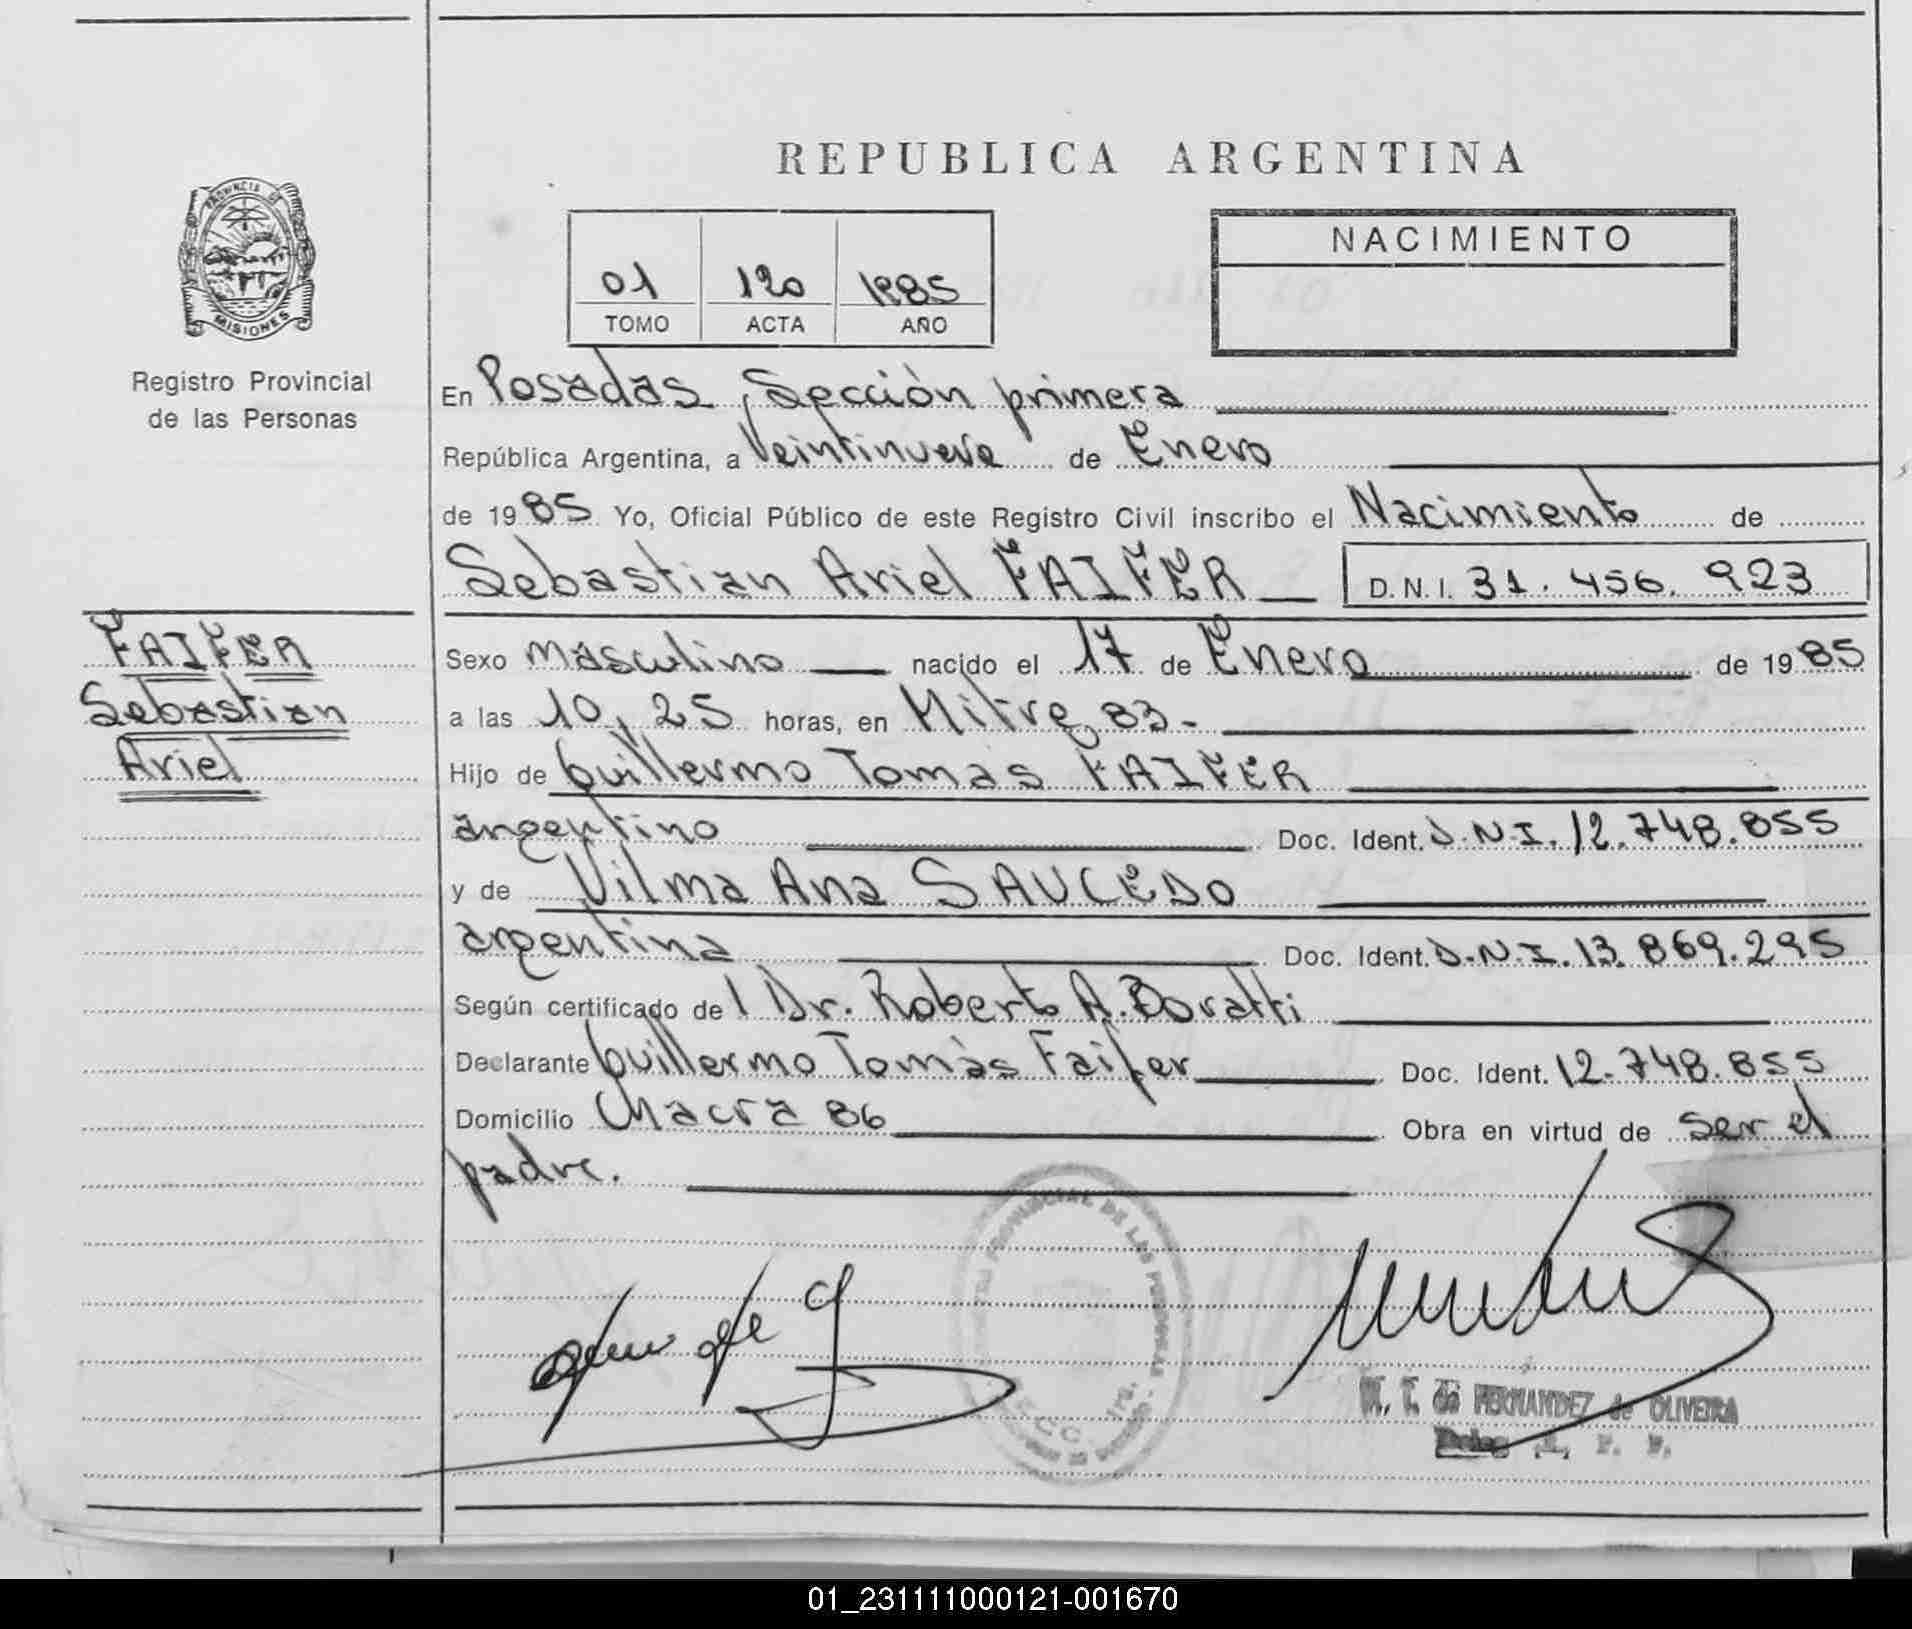 REPUBLICA ARGENTINA
PROVINCIA DE
MISIONES
Registro Provincial
de las Personas
01 120 1985
TOMO ACTA AÑO
NACIMIENTO
En Posadas, Sección primera
República Argentina, a Veintinueve de Enero
de 1985 Yo, Oficial Público de este Registro Civil inscribo el Nacimiento de
Sebastian Ariel FAIFER D.N.I. 31.456.923
FAIFER
Sebastian
Ariel
Sexo masculino nacido el 17 de Enero de 1985
a las 10,25 horas, en Mitre 83.-
Hijo de Guillermo Tomas FAIFER
argentino Doc. Ident. D.N.I. 12.748.855
y de Vilma Ana SAUCEDO
argentina Doc. Ident. D.N.I. 13.869.295
Según certificado de l Dr. Roberto A. Boratti
Declarante Guillermo Tomàs Faifer Doc. Ident. 12.748.855
Domicilio Chacra 86 Obra en virtud de ser el
padre.
PROVINCIAL DE LAS PERSONAS
SECC. 1ra.
M. T. de FERNANDEZ de OLIVEIRA
01_231111000121-001670